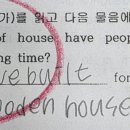 가)를 읽고 다음 물음에
of house have peop
ng time?
ve built for
ooden house